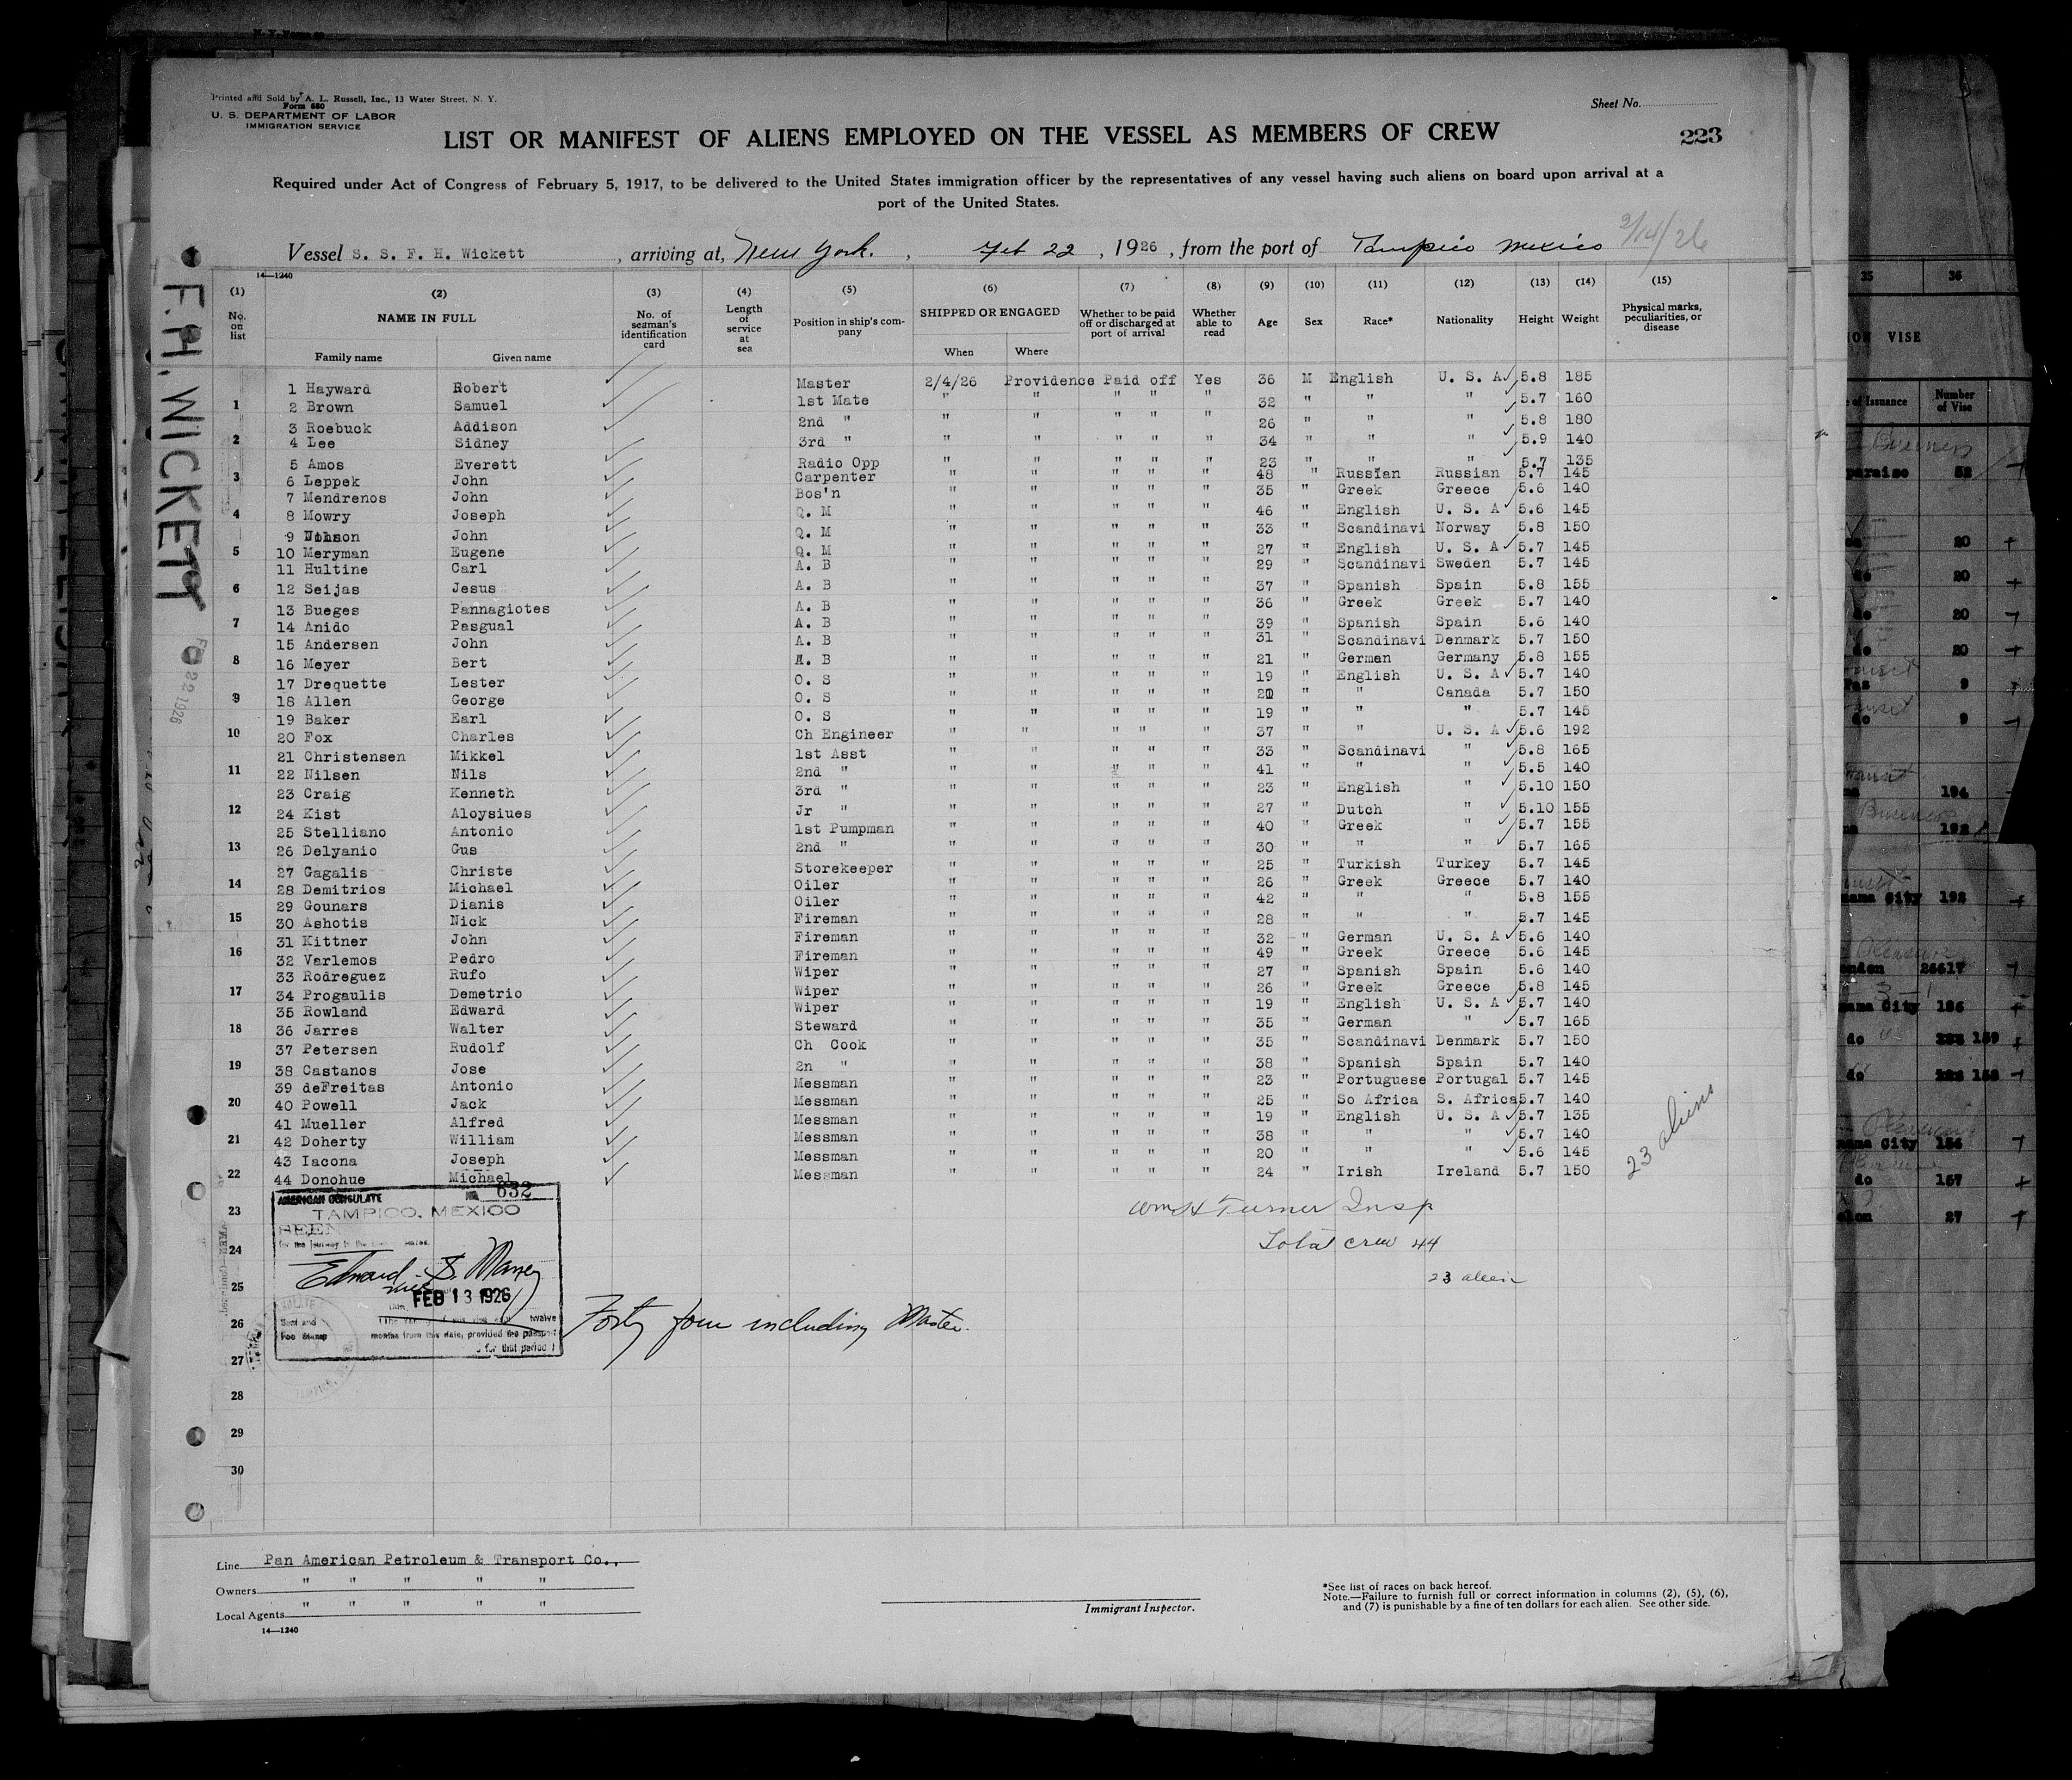 Printed and Sold by A. L. Russell, Inc., 13 Water Street, N. Y.
Form 680
U. S. DEPARTMENT OF LABOR
IMMIGRATION SERVICE
Sheet No.
LIST OR MANIFEST OF ALIENS EMPLOYED ON THE VESSEL AS MEMBERS OF CREW
223
Required under Act of Congress of February 5, 1917, to be delivered to the United States immigration officer by the representatives of any vessel having such aliens on board upon arrival at a
port of the United States.
2/14/26
Vessel S. S. F. H. Wickett, arriving at, New York. , Feb 22, 1926, from the port of Tampico Mexico
14—1240
(1) No. on list
(2) NAME IN FULL Family name Given name
(3) No. of seaman's identification card
(4) Length of service at sea
(5) Position in ship's company
(6) SHIPPED OR ENGAGED When Where
(7) Whether to be paid off or discharged at port of arrival
(8) Whether able to read
(9) Age
(10) Sex
(11) Race*
(12) Nationality
(13) Height
(14) Weight
(15) Physical marks, peculiarities, or disease
1 Hayward Robert Master 2/4/26 Providence Paid off Yes 36 M English U. S. A 5.8 185
2 Brown Samuel 1st Mate " " " " " 32 " " " 5.7 160
3 Roebuck Addison 2nd " " " " " " 26 " " " 5.8 180
4 Lee Sidney 3rd " " " " " " 34 " " " 5.9 140
5 Amos Everett Radio Opp " " " " " 23 " " " 5.7 135
6 Leppek John Carpenter " " " " " 48 " Russian Russian 5.7 145
7 Mendrenos John Bos'n " " " " " 35 " Greek Greece 5.6 140
8 Mowry Joseph Q. M " " " " " 46 " English U. S. A 5.6 145
9 John Q. M " " " " " 33 " Scandinavi Norway 5.8 150
10 Meryman Eugene Q. M " " " " " 27 " English U. S. A 5.7 145
11 Hultine Carl A. B " " " " " 29 " Scandinavi Sweden 5.7 145
12 Seijas Jesus A. B " " " " " 37 " Spanish Spain 5.8 155
13 Bueges Pannagiotes A. B " " " " " 36 " Greek Greek 5.7 140
14 Anido Pasgual A. B " " " " " 39 " Spanish Spain 5.6 140
15 Andersen John A. B " " " " " 31 " Scandinavi Denmark 5.7 150
16 Meyer Bert A. B " " " " " 21 " German Germany 5.8 155
17 Drequette Lester O. S " " " " " 19 " English U. S. A 5.7 140
18 Allen George O. S " " " " " " " Canada 5.7 150
19 Baker Earl O. S " " " " " 19 " " " 5.7 145
20 Fox Charles Ch Engineer " " " " " 37 " " U. S. A 5.6 192
21 Christensen Mikkel 1st Asst " " " " " 33 " Scandinavi " 5.8 165
22 Nilsen Nils 2nd " " " " " " 41 " " " 5.5 140
23 Craig Kenneth 3rd " " " " " " 23 " English " 5.10 150
24 Kist Aloysiues Jr " " " " " " 27 " Dutch " 5.10 155
25 Stelliano Antonio 1st Pumpman " " " " " 40 " Greek " 5.7 155
26 Delyanio Gus 2nd " " " " " " 30 " " " 5.7 165
27 Gagalis Christe Storekeeper " " " " " 25 " Turkish Turkey 5.7 145
28 Demitrios Michael Oiler " " " " " 26 " Greek Greece 5.7 140
29 Gounars Dianis Oiler " " " " " 42 " " " 5.8 155
30 Ashotis Nick Fireman " " " " " 28 " " " 5.7 145
31 Kittner John Fireman " " " " " 32 " German U. S. A 5.6 140
32 Varlemos Pedro Fireman " " " " " 49 " Greek Greece 5.6 145
33 Rodreguez Rufo Wiper " " " " " 27 " Spanish Spain 5.6 140
34 Progaulis Demetrio Wiper " " " " " 26 " Greek Greece 5.8 145
35 Rowland Edward Wiper " " " " " 19 " English U. S. A 5.7 140
36 Jarres Walter Steward " " " " " 35 " German " 5.7 165
37 Petersen Rudolf Ch Cook " " " " " 35 " Scandinavi Denmark 5.7 150
38 Castanos Jose 2n " " " " " " 38 " Spanish Spain 5.7 140
39 deFreitas Antonio Messman " " " " " 23 " Portuguese Portugal 5.7 145
40 Powell Jack Messman " " " " " 25 " So Africa S. Africa 5.7 140
41 Mueller Alfred Messman " " " " " 19 " English U. S. A 5.7 135
42 Doherty William Messman " " " " " 38 " " " 5.7 140
43 Iacona Joseph Messman " " " " " 20 " " " 5.6 145
44 Donohue Michael Messman " " " " " 24 " Irish Ireland 5.7 150
23 aliens
1
2
3
4
5
6
7
8
9
10
11
12
13
14
15
16
17
18
19
20
21
22
23
24
25
26
27
28
29
30
F.H. WICKETT
FEB 22 1926
No 632
AMERICAN CONSULATE
TAMPICO, MEXICO
SEEN
for the journey to the
Edward S. Maney
FEB 13 1926
twelve
months from this date, provided the passport
for that period
Seal and
Fee Stamp
Wm H Turner Insp
Total crew 44
23 alien
Forty four including Master.
Line Pan American Petroleum & Transport Co.,
Owners " " " " "
Local Agents " " " " "
14—1240
Immigrant Inspector.
*See list of races on back hereof.
Note.—Failure to furnish full or correct information in columns (2), (5), (6),
and (7) is punishable by a fine of ten dollars for each alien. See other side.
35 36
VISE
of Issuance
Number of Vise
paraiso 52
20
do 20
do 20
do 20
9
do 9
194
192
City 192
26617
City 186
do 159
do 158
City 156
do 157
27